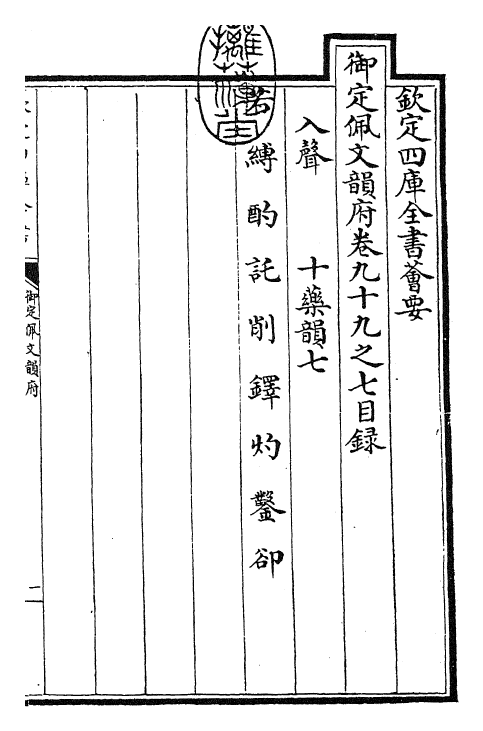 欽定四庫全書薈要
御定佩文韻府卷九十九之七目録
入聲　十藥韻七
若縛酌託削鐸灼鑿卻
御定佩文韻府